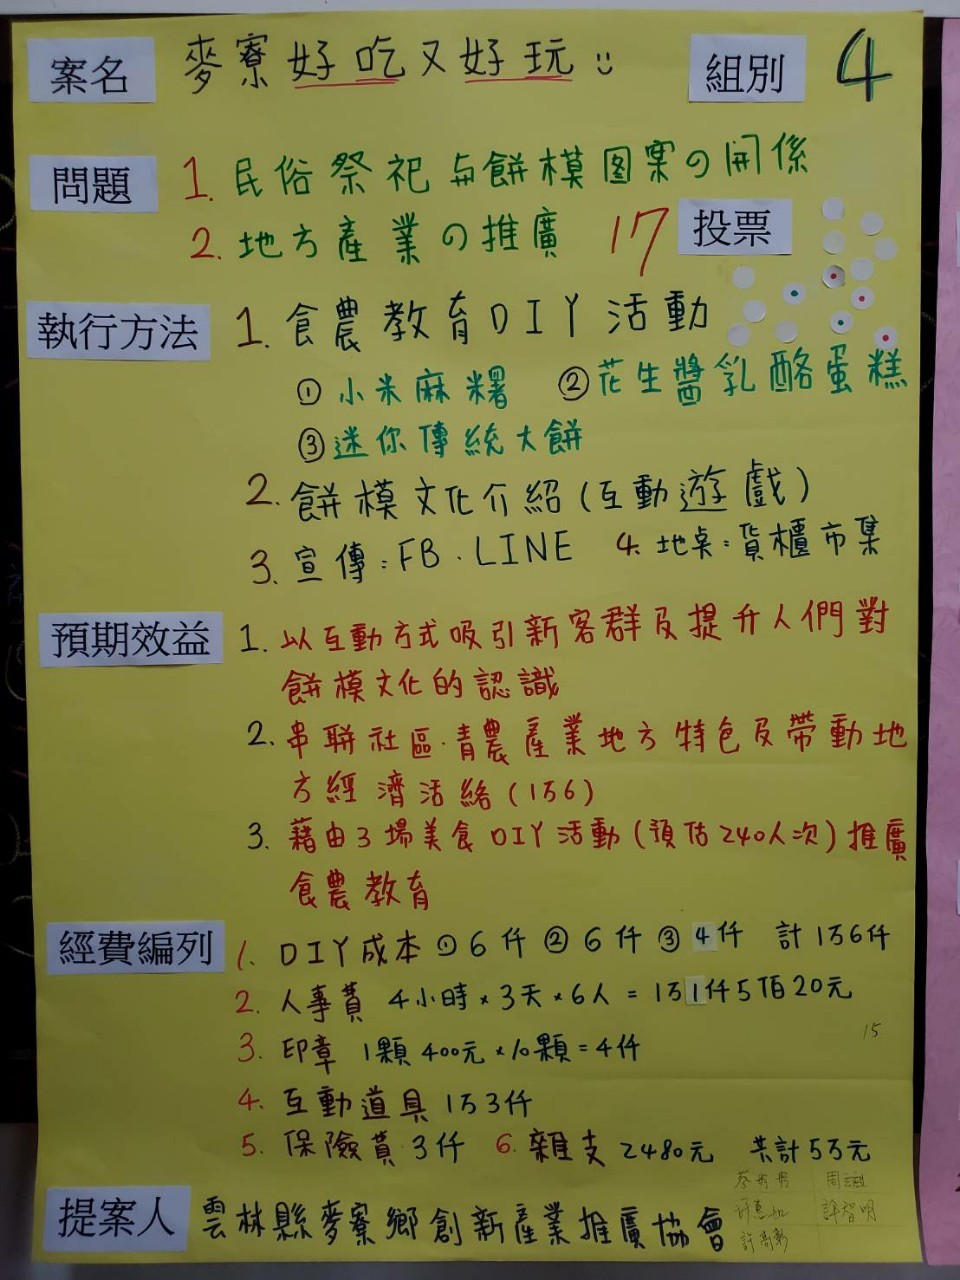 案名 麥寮好吃又好玩 組別 4
問題 1. 民俗祭祀与餅模图案の関係
2. 地方產業の推廣 17 投票
執行方法 1. 食農教育DIY活動
① 小米麻糬 ② 花生醬乳酪蛋糕
③ 迷你傳統大餅
2. 餅模文化介紹(互動遊戲)
3. 宣傳:FB.LINE 4. 地桌:貨櫃市集
預期效益 1. 以互動方式吸引新客群及提升人們對
餅模文化的認識
2. 串聯社區.青農產業地方特色及帶動地
方經濟活絡(1万6)
3. 藉由3場美食DIY活動(預估240人次)推廣
食農教育
經費編列 1. DIY成本 ①6仟 ②6仟 ③4仟 計1万6仟
2. 人事費 4小時×3天×6人=1万1仟5佰20元
15
3. 印章 1顆400元×10顆=4仟
4. 互動道具 1万3仟
5. 保險費.3仟 6. 雜支2480元 共計5万元
提案人 雲林縣麥寮鄉創新產業推廣協會
許智明